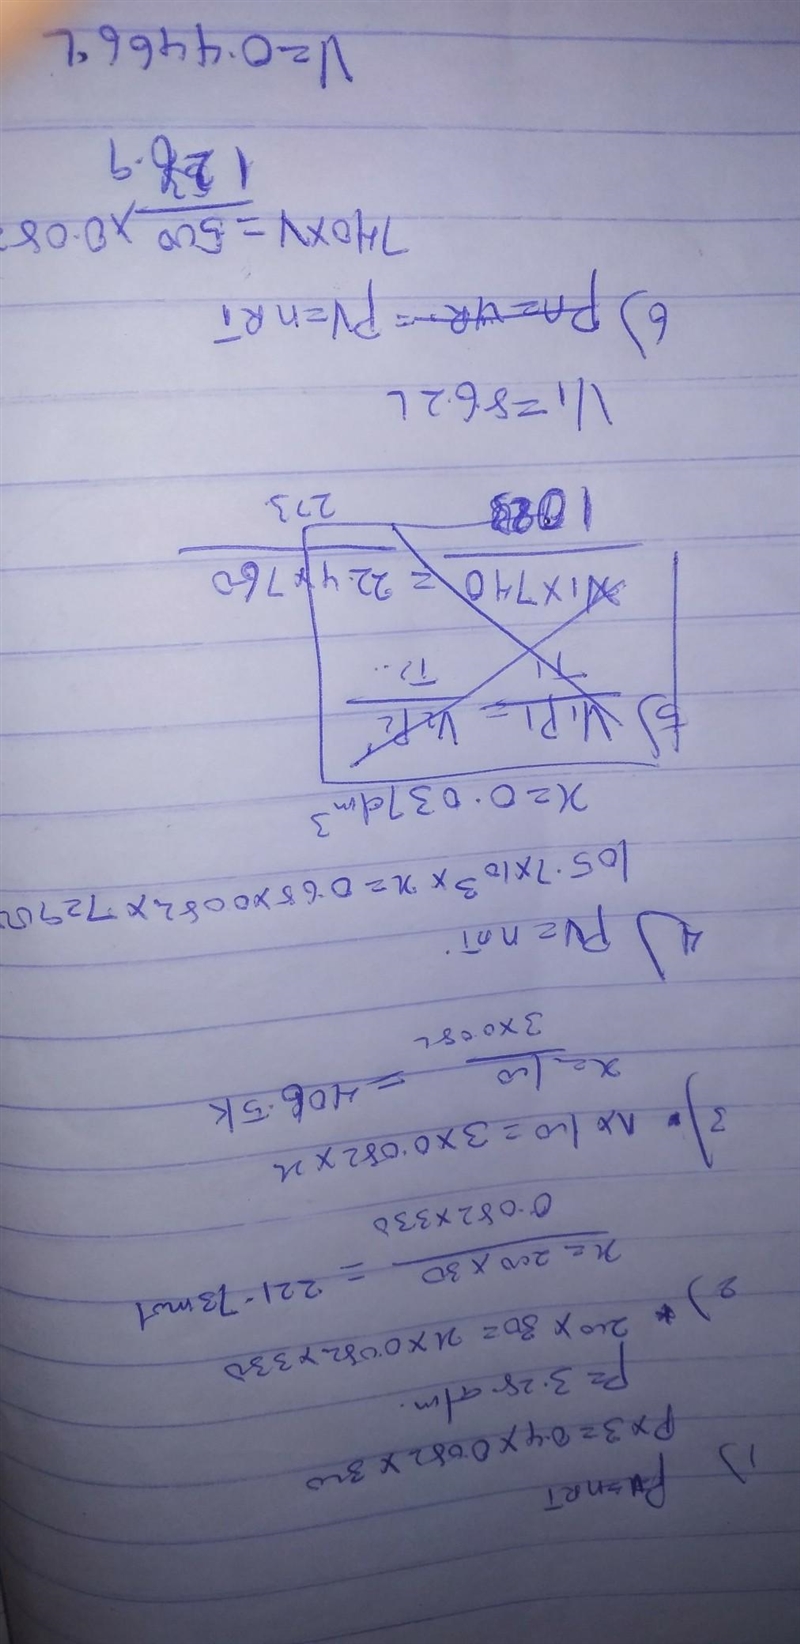 1) PV=nRT
P×3=0.4×0.082×300
P=3.28 atm.
2) 200×30=x×0.082×330
x=200×30/0.082×330 = 221.73mol
3) 1×100=3×0.082×x
x=100/3×0.082 = 406.5K
4) PV=nRT
105.7×10³×x=0.65×0.082×729
x=0.037dm³
5) V₁P₁/T₁ = V₂P₂/T₂
V₁×740/ = 22.4×760/273
V₁=86.2L
6) PV=nRT
740×V=500/128.9×0.08
V=0.4466L